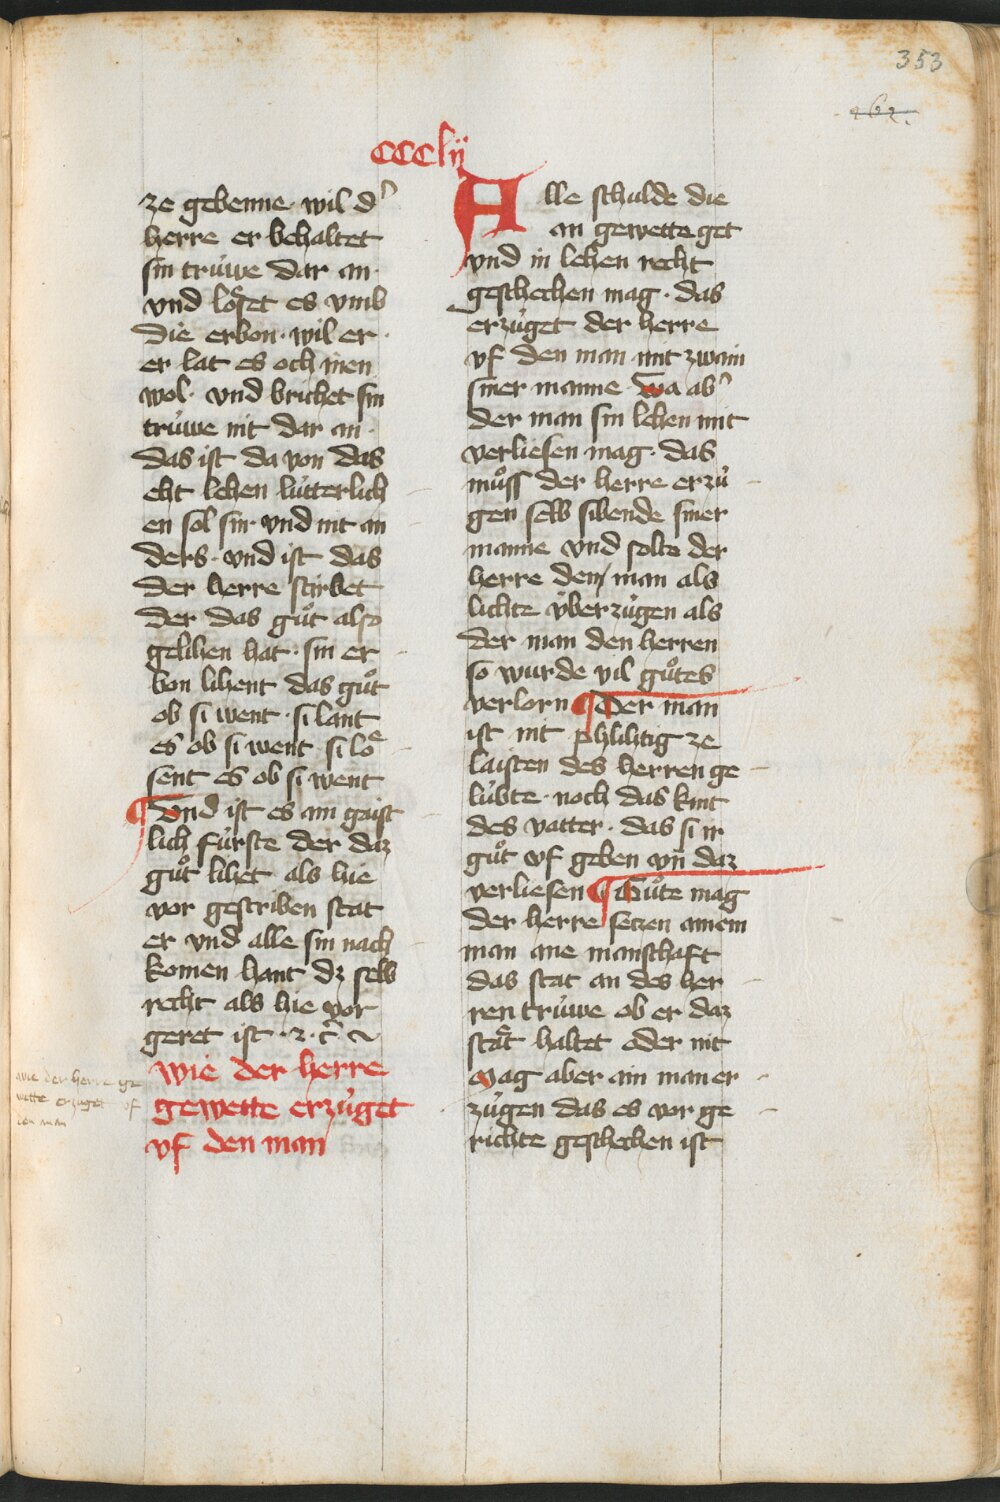 353
162.
ccclij
ze gebenne · wil d᾽
herre er behaltet
sin trúwe dar an ·
vnd lo̊set es vmb
die erbon · wil er ·
er lat es och inen
wol · vnd brichet sin
trúwe nit dar an ·
das ist da von das
eht lehen lútterlich
en sol sin vnd nit an
ders · vnd ist das
der herre stirbet
der das gůt also
gelihen hat · sin er
bon lihent das gůt
ob si went · si lant
es ob si went · si loͤ
sent es ob si went
¶ Vnd ist es ain gaist
lich fúrste der daz
gůt lihet als hie
vor gescriben stat
er vnd alle sin nach
komen hant dz selb
recht als hie vor
geret ist · ⁊ · c̄
wie der herre
gewette erzúget
vf den man
wie der herre ge
wette erzúget vf
den man
Alle schulde die
an gewette get
vnd in lehen recht
geschechen mag · das
erzúget der herre
vf den man mit zwain
siner manne · Wa ab᾽
der man sin lehen mit
verliesen mag · das
můss der herre erzú
gen selb sibende siner
manne vnd solte der
herre den man als
lichte v́berzúgen als
der man den herren
so wurde vil gůtes
verlorn ¶ Der man
ist nit phlihtig ze
laisten des herren ge
lúbte · noch das kint
des vatter · das si ir
gůt vf geben vn̄ daz
verliesen ¶ Gůte mag
der herre setzen ainem
man ane manschaft
das stat an des her
ren trúwe ob er daz
staͤt haltet oder nit
Mag aber ain man er
zúgen das es vor ge
richte geschechen ist